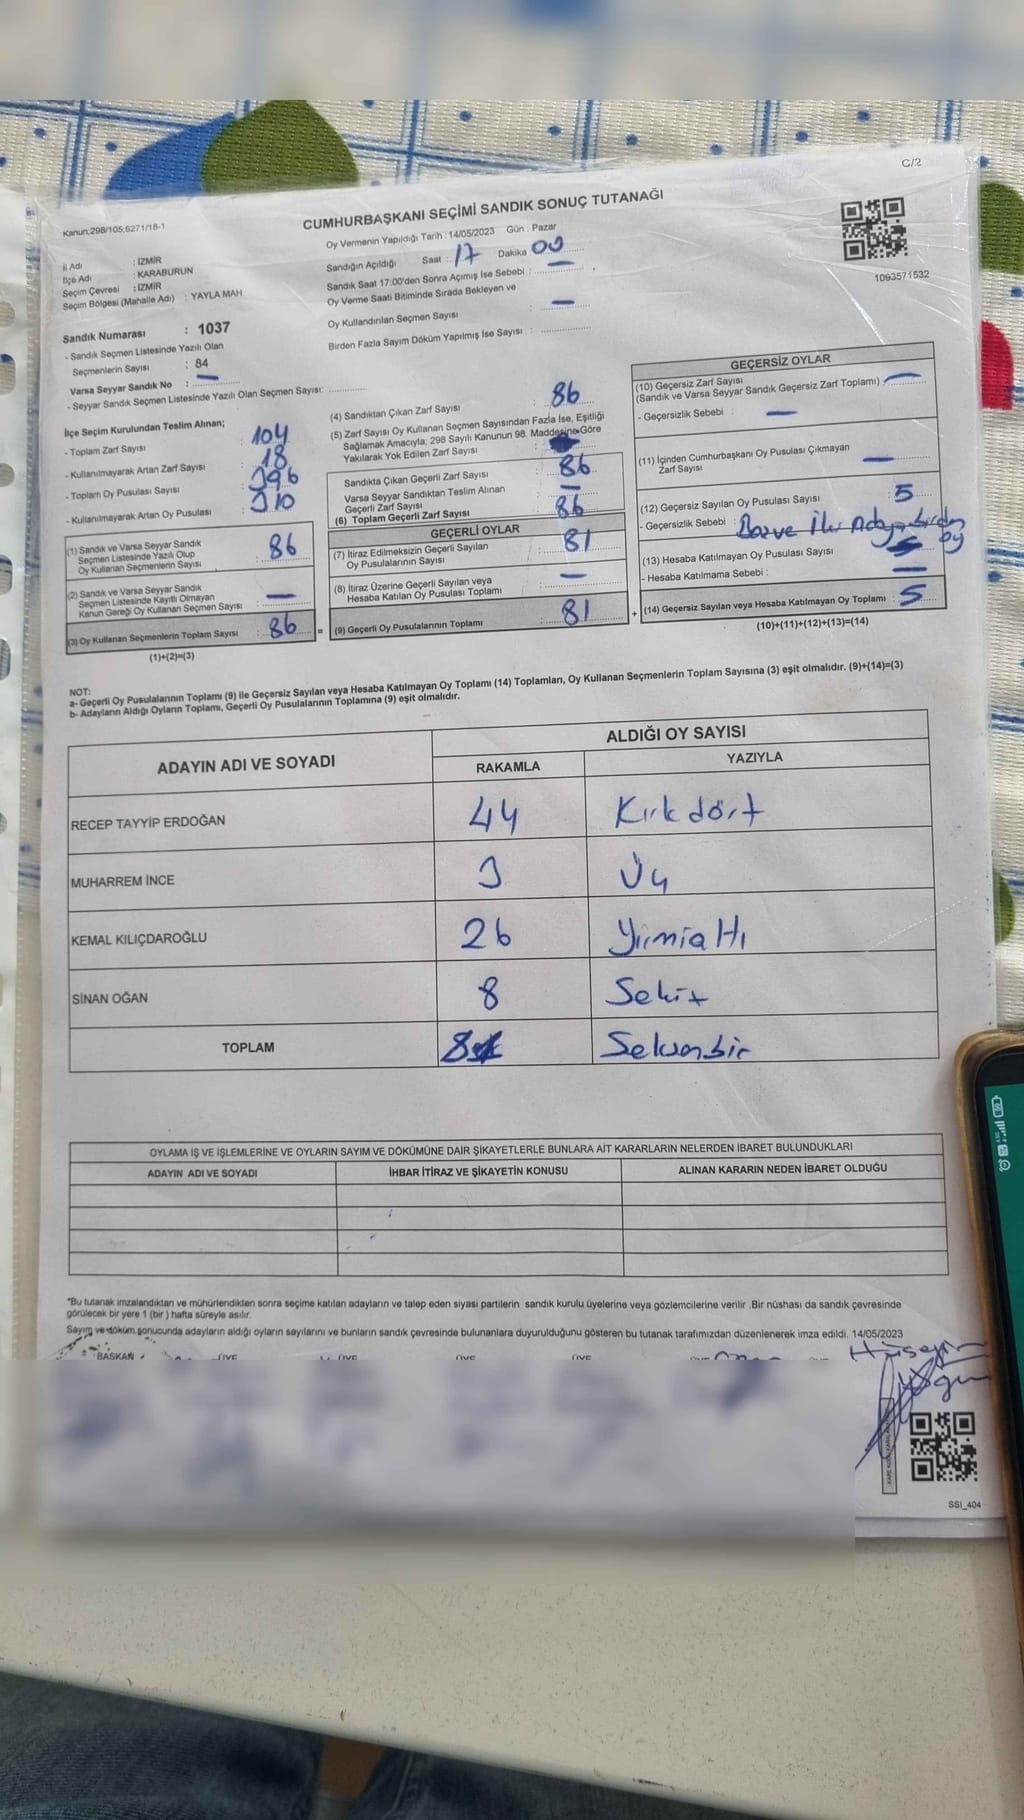 C/2
Kanun:298/105;6271/18-1
CUMHURBAŞKANI SEÇİMİ SANDIK SONUÇ TUTANAĞI
Oy Vermenin Yapıldığı Tarih : 14/05/2023 Gün : Pazar
1093571532
İl Adı : İZMİR
İlçe Adı : KARABURUN
Seçim Çevresi : İZMİR
Seçim Bölgesi (Mahalle Adı) : YAYLA MAH
Sandığın Açıldığı Saat : 17 Dakika 00
Sandık Saat 17:00'den Sonra Açımış İse Sebebi : —
Oy Verme Saati Bitiminde Sırada Bekleyen ve
Oy Kullandırılan Seçmen Sayısı —
Birden Fazla Sayım Döküm Yapılmış İse Sayısı :
Sandık Numarası : 1037
- Sandık Seçmen Listesinde Yazılı Olan
Seçmenlerin Sayısı : 84
Varsa Seyyar Sandık No : —
- Seyyar Sandık Seçmen Listesinde Yazılı Olan Seçmen Sayısı:
İlçe Seçim Kurulundan Teslim Alınan;
- Toplam Zarf Sayısı : 104
- Kullanılmayarak Artan Zarf Sayısı : 18
- Toplam Oy Pusulası Sayısı : 396
- Kullanılmayarak Artan Oy Pusulası : 310
(1) Sandık ve Varsa Seyyar Sandık
Seçmen Listesinde Yazılı Olup
Oy Kullanan Seçmenlerin Sayısı : 86
(2) Sandık ve Varsa Seyyar Sandık
Seçmen Listesinde Kayıtlı Olmayan
Kanun Gereği Oy Kullanan Seçmen Sayısı : —
(3) Oy Kullanan Seçmenlerin Toplam Sayısı : 86
(1)+(2)=(3)
(4) Sandıktan Çıkan Zarf Sayısı : 86
(5) Zarf Sayısı Oy Kullanan Seçmen Sayısından Fazla İse, Eşitliği
Sağlamak Amacıyla, 298 Sayılı Kanunun 98. Maddesine Göre
Yakılarak Yok Edilen Zarf Sayısı
Sandıkta Çıkan Geçerli Zarf Sayısı : 86
Varsa Seyyar Sandıktan Teslim Alınan
Geçerli Zarf Sayısı —
(6) Toplam Geçerli Zarf Sayısı : 86
GEÇERLİ OYLAR
(7) İtiraz Edilmeksizin Geçerli Sayılan
Oy Pusulalarının Sayısı : 81
(8) İtiraz Üzerine Geçerli Sayılan veya
Hesaba Katılan Oy Pusulası Toplamı : —
(9) Geçerli Oy Pusulalarının Toplamı : 81
=
+
GEÇERSİZ OYLAR
(10) Geçersiz Zarf Sayısı
(Sandık ve Varsa Seyyar Sandık Geçersiz Zarf Toplamı) —
- Geçersizlik Sebebi : —
(11) İçinden Cumhurbaşkanı Oy Pusulası Çıkmayan
Zarf Sayısı —
(12) Geçersiz Sayılan Oy Pusulası Sayısı : 5
- Geçersizlik Sebebi : ve İki oy
(13) Hesaba Katılmayan Oy Pusulası Sayısı
- Hesaba Katılmama Sebebi : —
(14) Geçersiz Sayılan veya Hesaba Katılmayan Oy Toplamı : 5
(10)+(11)+(12)+(13)=(14)
NOT:
a- Geçerli Oy Pusulalarının Toplamı (9) ile Geçersiz Sayılan veya Hesaba Katılmayan Oy Toplamı (14) Toplamları, Oy Kullanan Seçmenlerin Toplam Sayısına (3) eşit olmalıdır. (9)+(14)=(3)
b- Adayların Aldığı Oyların Toplamı, Geçerli Oy Pusulalarının Toplamına (9) eşit olmalıdır.
ADAYIN ADI VE SOYADI
ALDIĞI OY SAYISI
RAKAMLA YAZIYLA
RECEP TAYYİP ERDOĞAN 44 Kırk dört
MUHARREM İNCE 3 Üç
KEMAL KILIÇDAROĞLU 26 Yirmialtı
SİNAN OĞAN 8 Sekiz
TOPLAM 81 Seksenbir
OYLAMA İŞ VE İŞLEMLERİNE VE OYLARIN SAYIM VE DÖKÜMÜNE DAİR ŞİKAYETLERLE BUNLARA AİT KARARLARIN NELERDEN İBARET BULUNDUKLARI
ADAYIN ADI VE SOYADI İHBAR İTİRAZ VE ŞİKAYETİN KONUSU ALINAN KARARIN NEDEN İBARET OLDUĞU
"Bu tutanak imzalandıktan ve mühürlendikten sonra seçime katılan adayların ve talep eden siyasi partilerin sandık kurulu üyelerine veya gözlemcilerine verilir .Bir nüshası da sandık çevresinde
görülecek bir yere 1 (bir ) hafta süreyle asılır.
Sayım ve döküm sonucunda adayların aldığı oyların sayılarını ve bunların sandık çevresinde bulunanlara duyurulduğunu gösteren bu tutanak tarafımızdan düzenlenerek imza edildi. 14/05/2023
BAŞKAN ÜYE ÜYE ÜYE ÜYE
Hüseyin
SSI_404